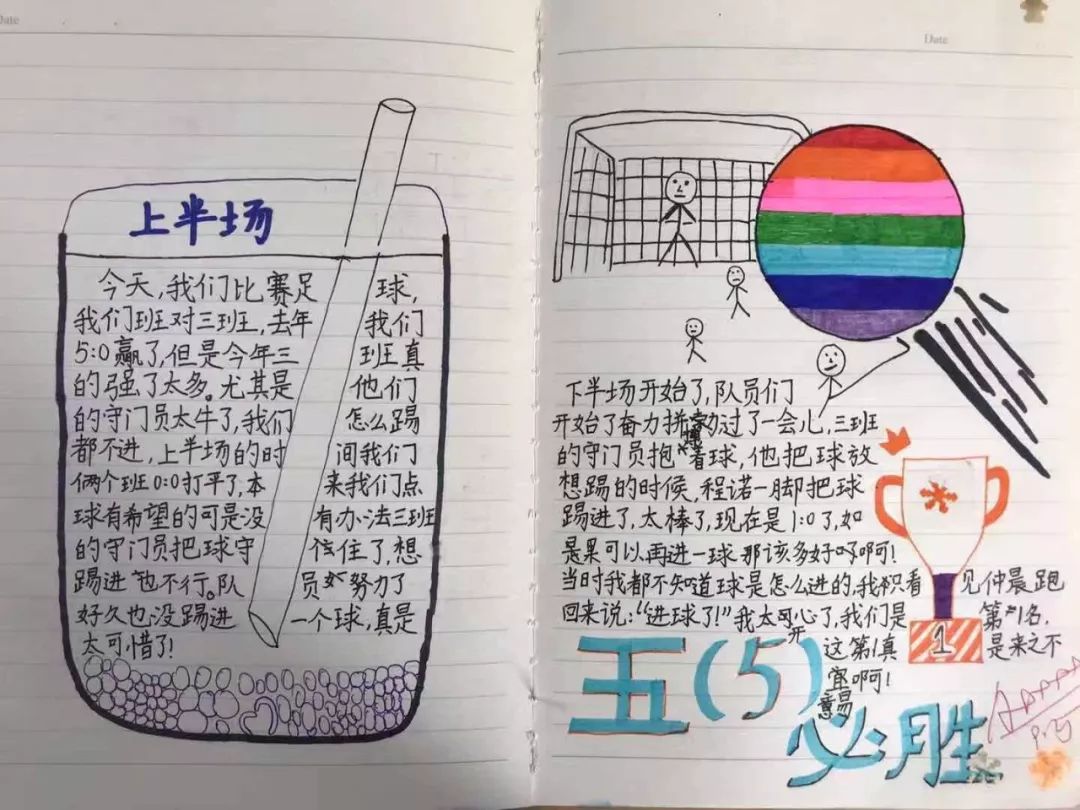 Date
上半场
今天,我们比赛足球,
我们班对三班,去年我们
5:0赢了,但是今年三班真
的强了太多。尤其是他们
的守门员太牛了,我们怎么踢
都不进,上半场的时间我们
俩个班0:0打平了,本来我们点
球有希望的可是没有办法三班
的守门员把球守住了,想
踢进也不行。队员努力了
好久也没踢进一个球,真是
太可惜了!
Date
下半场开始了,队员们
开始了奋力拼过了一会儿,三班
的守门员抱着球,他把球放
想踢的时候,程诺一脚把球
踢进了,太棒了,现在是1:0了,如
是果可以再进一球那该多好啊!
当时我都不知道球是怎么进的,我只看见仲晨跑
回来说:“进球了!”我太开心了,我们是第1名,
这第1真是来之不
易啊!
1
五(5)
必胜